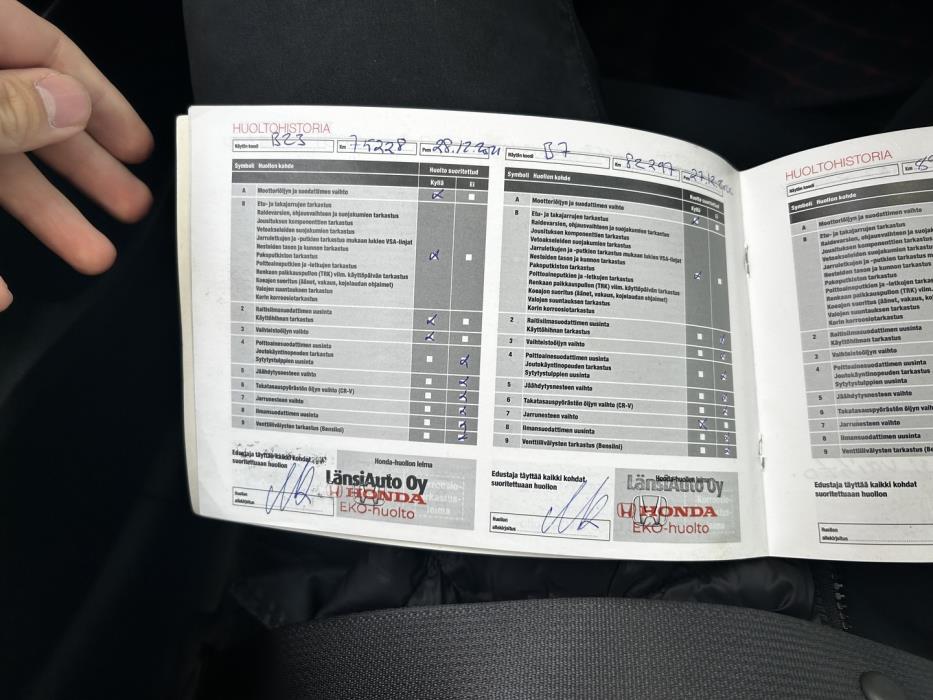 HUOLTOHISTORIA
Näytön koodi B23 Km 75228 Pvm 28.12.2021
Symboli Huollon kohde Huolto suoritettud
Kyllä Ei
A Moottoriöljyn ja suodattimen vaihto
B Etu- ja takajarrujen tarkastus
Raidevarsien, ohjausvaihteen ja suojakumien tarkastus
Jousituksen komponenttien tarkastus
Vetoakseleiden suojakumien tarkastus
Jarruletkujen ja -putkien tarkastus mukaan lukien VSA-linjat
Nesteiden tason ja kunnon tarkastus
Pakoputkiston tarkastus
Polttoaineputkien ja -letkujen tarkastus
Renkaan paikkauspullon (TRK) viim. käyttöpäivän tarkastus
Koeajon suoritus (äänet, vakaus, kojelaudan ohjaimet)
Valojen suuntauksen tarkastus
Korin korroosiotarkastus
2 Raitisilmasuodattimen uusinta
Käyttöhihnan tarkastus
3 Vaihteistoöljyn vaihto
4 Polttoainesuodattimen uusinta
Joutokäyntinopeuden tarkastus
Sytytystulppien uusinta
5 Jäähdytysnesteen vaihto
6 Takatasauspyörästön öljyn vaihto (CR-V)
7 Jarrunesteen vaihto
8 Ilmansuodattimen uusinta
9 Venttiilivälysten tarkastus (Bensiini)
Edustaja täyttää kaikki kohdat,
suoritettuaan huollon
Honda-huollon leima
LänsiAuto Oy
HONDA
EKO-huolto
Huollon
allekirjoitus
Näytön koodi B7 Km 82297
Symboli Huollon kohde Huolto suoritettud
Kyllä Ei
A Moottoriöljyn ja suodattimen vaihto
B Etu- ja takajarrujen tarkastus
Raidevarsien, ohjausvaihteen ja suojakumien tarkastus
Jousituksen komponenttien tarkastus
Vetoakseleiden suojakumien tarkastus
Jarruletkujen ja -putkien tarkastus mukaan lukien VSA-linjat
Nesteiden tason ja kunnon tarkastus
Pakoputkiston tarkastus
Polttoaineputkien ja -letkujen tarkastus
Renkaan paikkauspullon (TRK) viim. käyttöpäivän tarkastus
Koeajon suoritus (äänet, vakaus, kojelaudan ohjaimet)
Valojen suuntauksen tarkastus
Korin korroosiotarkastus
2 Raitisilmasuodattimen uusinta
Käyttöhihnan tarkastus
3 Vaihteistoöljyn vaihto
4 Polttoainesuodattimen uusinta
Joutokäyntinopeuden tarkastus
Sytytystulppien uusinta
5 Jäähdytysnesteen vaihto
6 Takatasauspyörästön öljyn vaihto (CR-V)
7 Jarrunesteen vaihto
8 Ilmansuodattimen uusinta
9 Venttiilivälysten tarkastus (Bensiini)
Edustaja täyttää kaikki kohdat,
suoritettuaan huollon
LänsiAuto Oy
HONDA
EKO-huolto
Huollon
allekirjoitus
HUOLTOHISTORIA
Näytön koodi Km
Symboli Huollon kohde
A Moottoriöljyn ja suodattimen vaihto
B Etu- ja takajarrujen tarkastus
Raidevarsien, ohjausvaihteen ja suojak
Jousituksen komponenttien tarkastus
Vetoakseleiden suojakumien tarkastus
Jarruletkujen ja -putkien tarkastus muk
Nesteiden tason ja kunnon tarkastus
Pakoputkiston tarkastus
Polttoaineputkien ja -letkujen tarkastus
Renkaan paikkauspullon (TRK) viim. kä
Koeajon suoritus (äänet, vakaus, koj
Valojen suuntauksen tarkastus
Korin korroosiotarkastus
2 Raitisilmasuodattimen uusinta
Käyttöhihnan tarkastus
3 Vaihteistoöljyn vaihto
4 Polttoainesuodattimen uusinta
Joutokäyntinopeuden tarkastus
Sytytystulppien uusinta
5 Jäähdytysnesteen vaihto
6 Takatasauspyörästön öljyn vaih
7 Jarrunesteen vaihto
8 Ilmansuodattimen uusinta
9 Venttiilivälysten tarkastus (Be
Edustaja täyttää kaikki kohdat
suoritettuaan huollon
Huollon
allekirjoitus